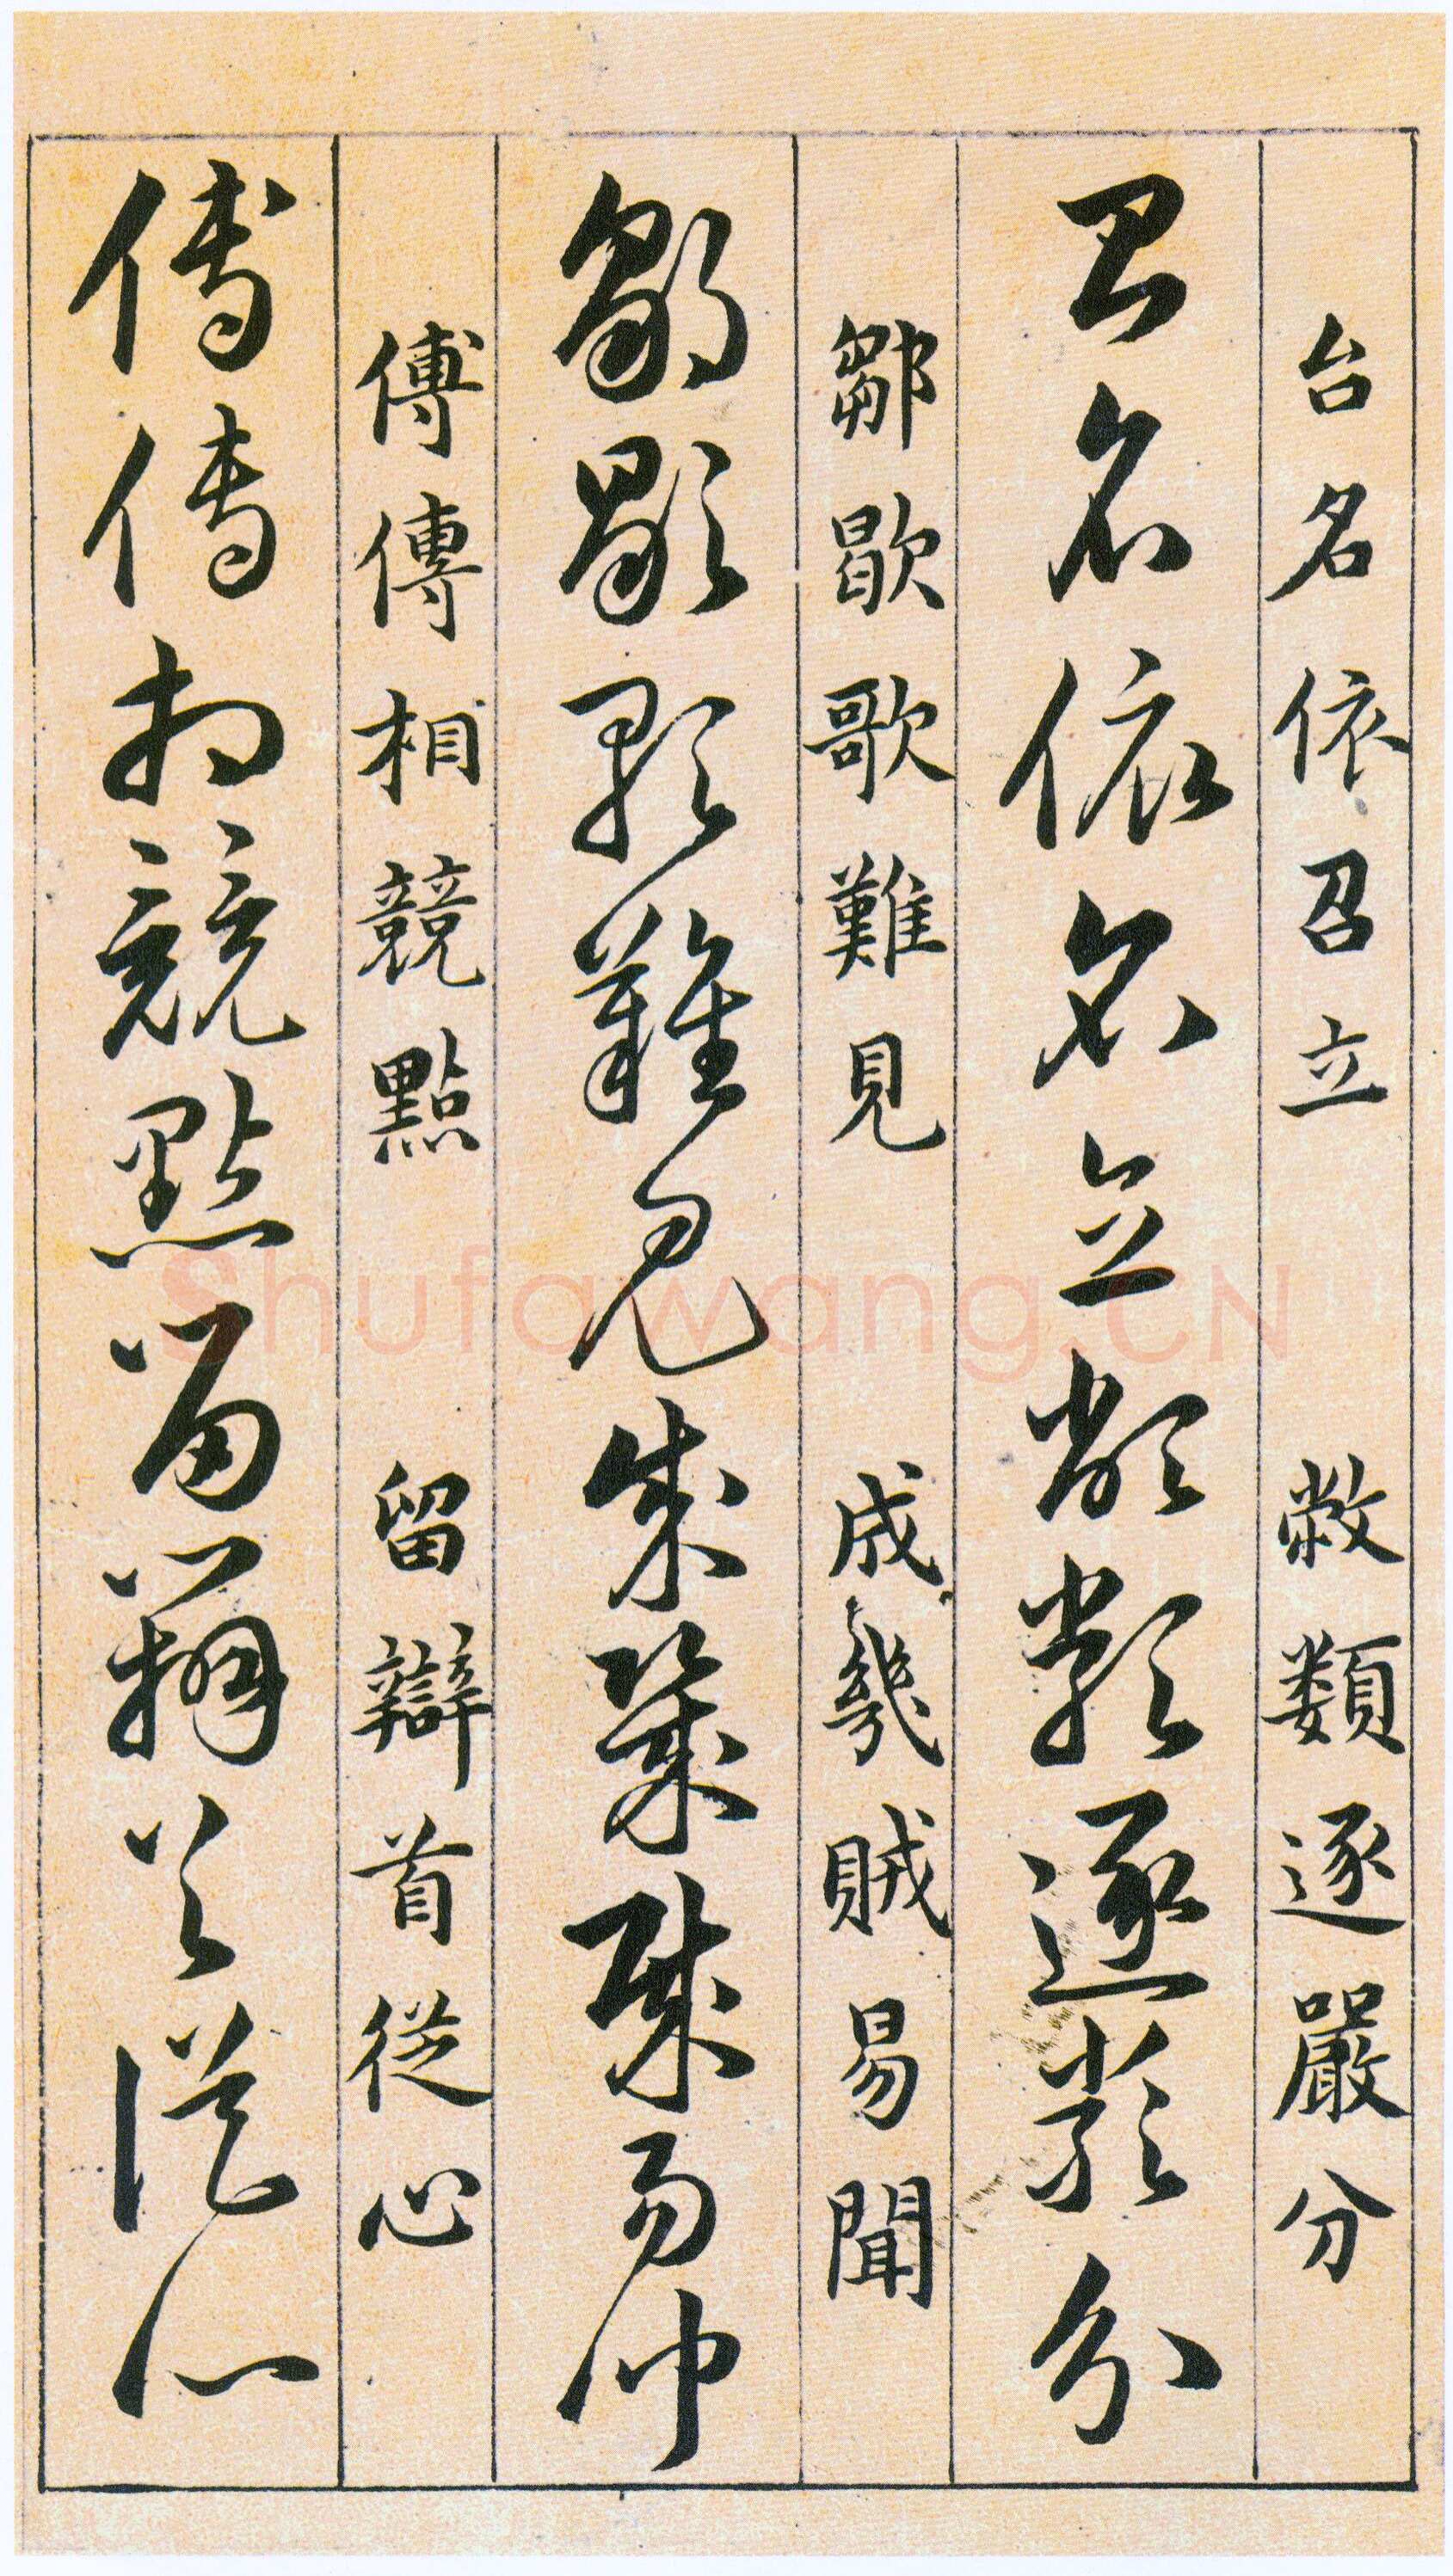 台名依召立 敝類逐嚴分
台名依召立敝類逐嚴分
鄒歇歌難見 成幾賊易聞
鄒歇歌難見成幾賊易聞
傅傳相競點 留辯首從心
傅傳相競點留辯首從心
Shufawang.CN